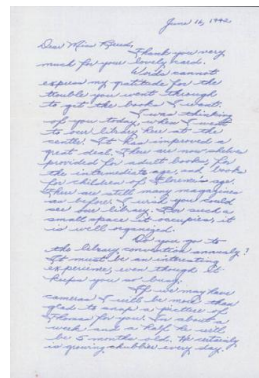 June 16, 1942
Dear Miss Breed,
Thank you very
much for your lovely card.
Words cannot
express my gratitude for the
trouble you went through
to get the books I want.
I was thinking
of you today when I went
to our library here at the
center. It has improved a
great deal. There are now shelves
provided for adult books, for
the intermediate age, and books
for children of Florence's age.
There are still many magazines
as before. I wish you could
see our library. For such a
small space it occupies, it
is well organized.
Do you go to
the library convention annualy?
It must be an interesting
experience, even though it
keeps you so busy.
If we may have
cameras I will be more than
glad to snap a picture of
Thomas for you. In about a
week and a half he will
be 5 months old. He certainly
is growing chubbier every day.